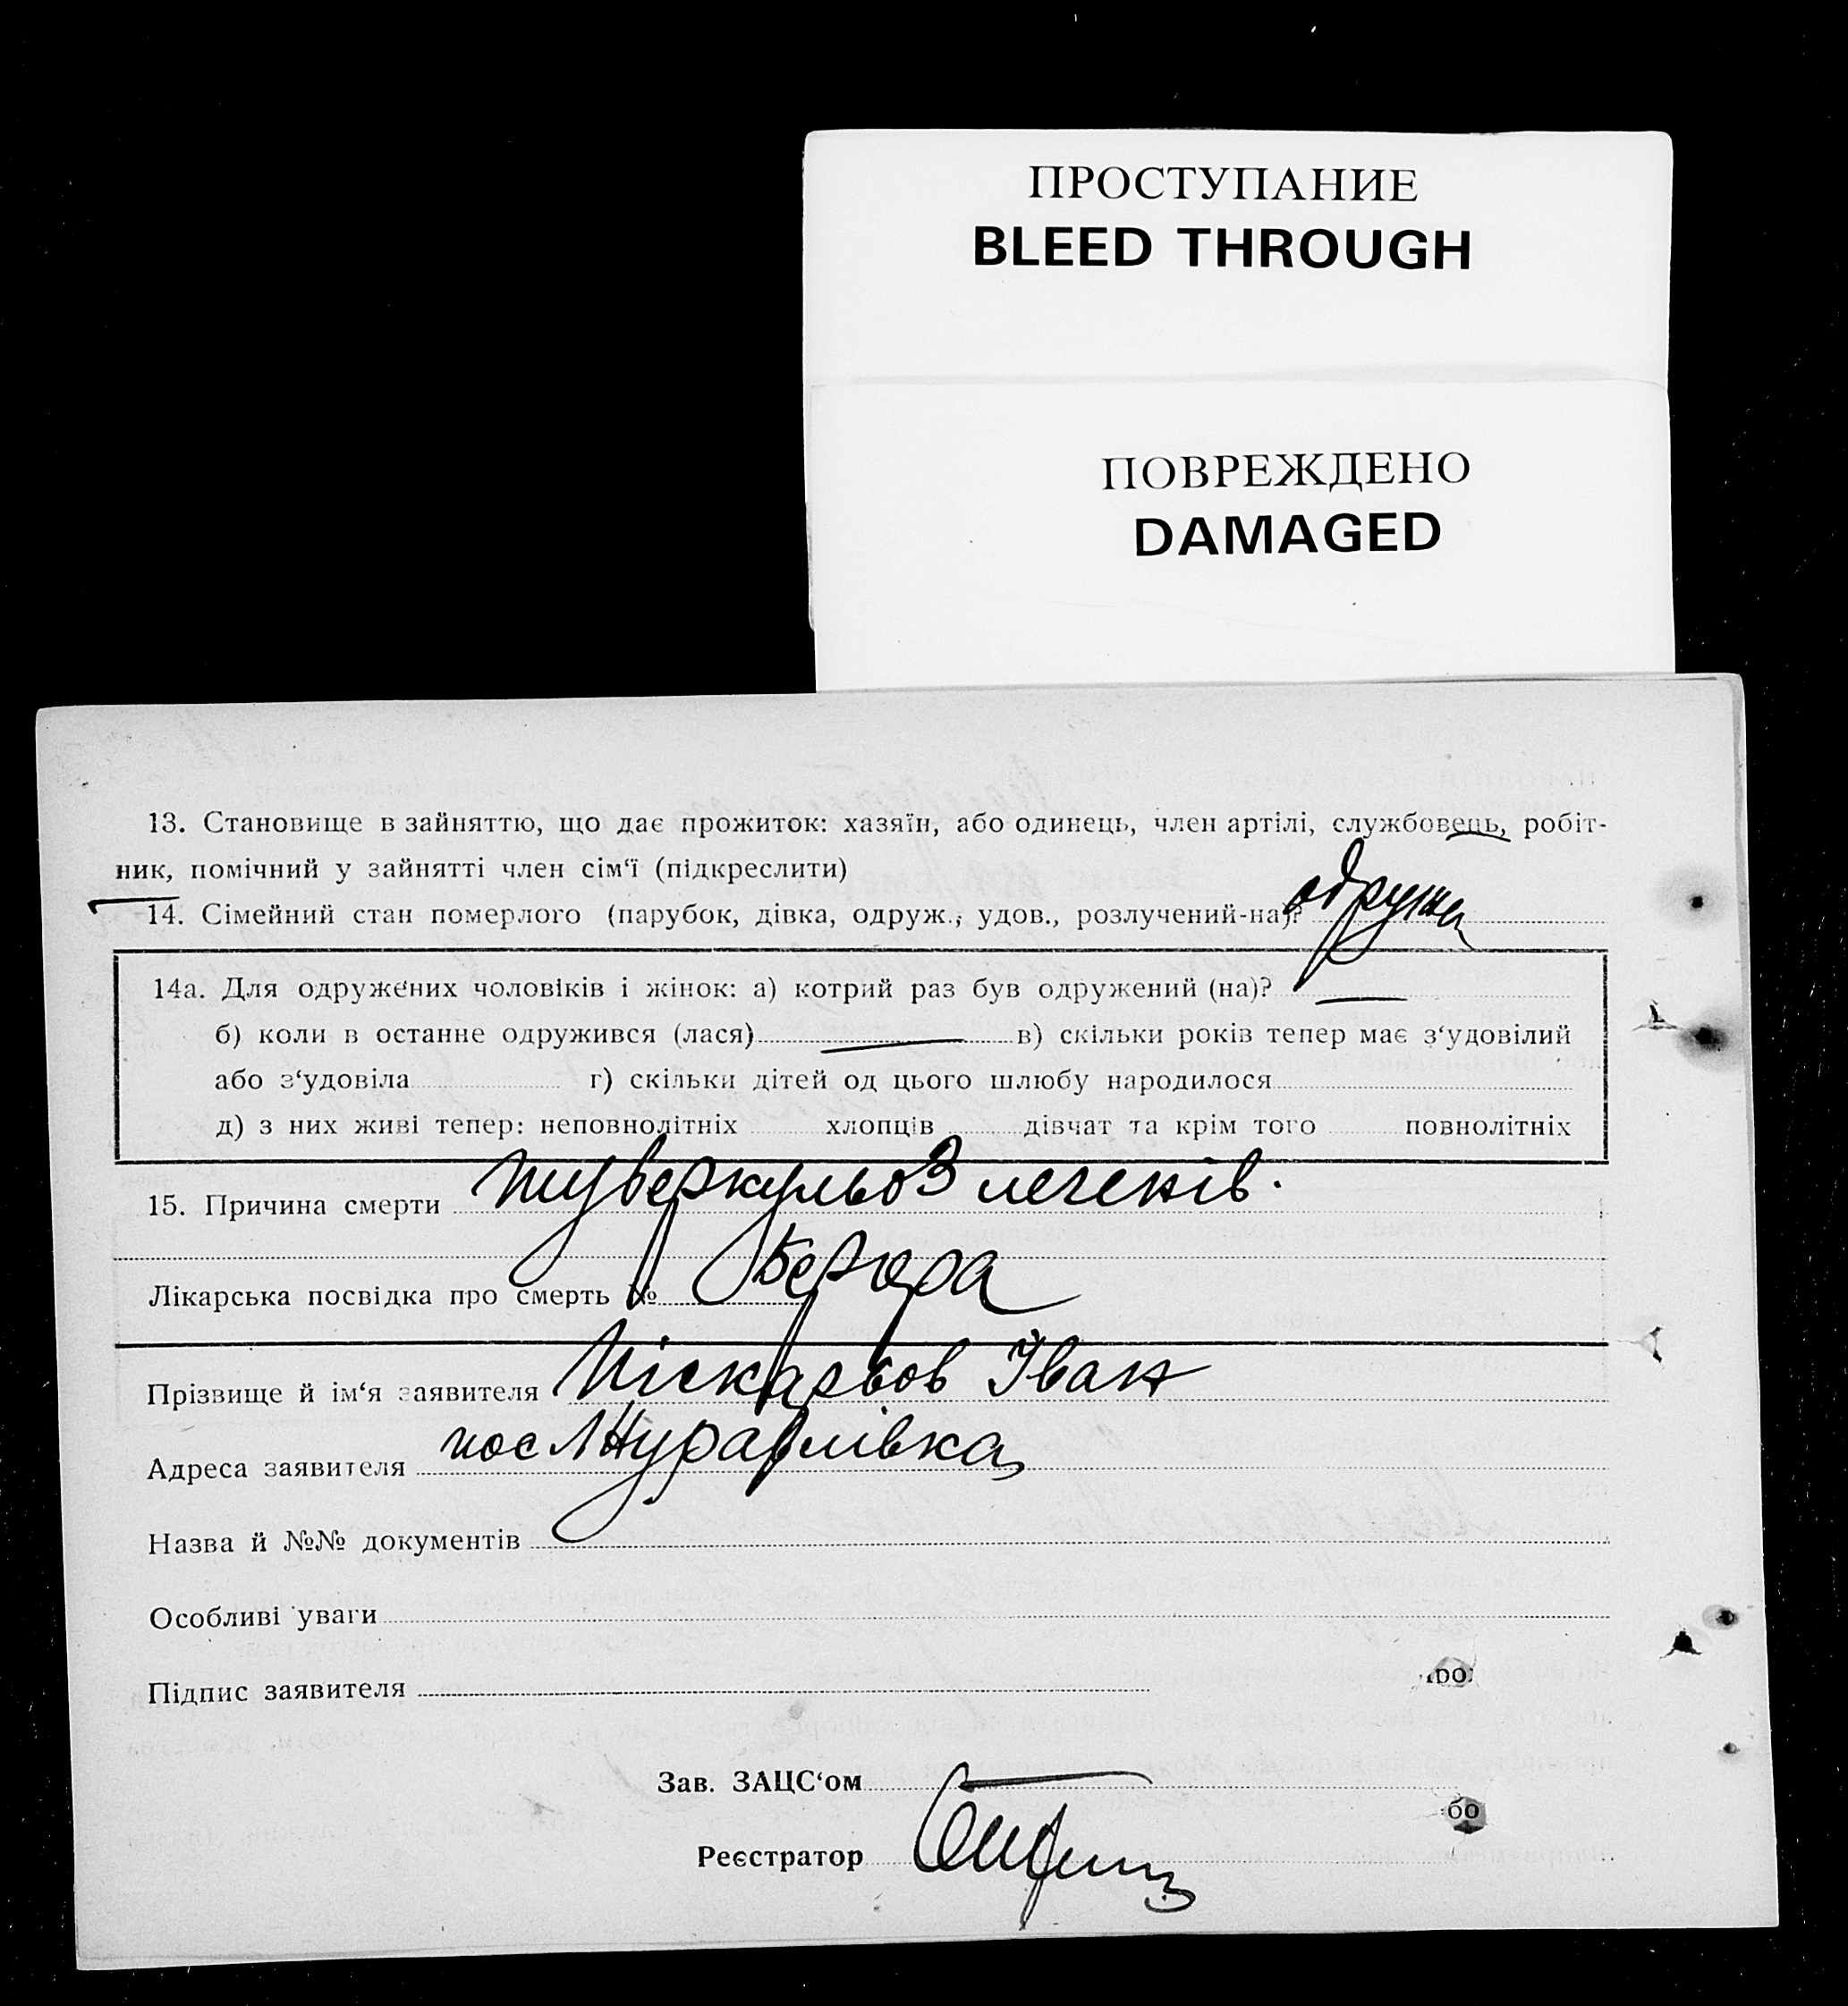 ПРОСТУПАНИЕ
BLEED THROUGH
ПОВРЕЖДЕНО
DAMAGED
13. Становище в зайняттю, що дає прожиток: хазяїн, або одинець, член артілі, службовець, робіт-
ник, помічний у зайнятті член сім‘ї (підкреслити)
14. Сімейний стан померлого (парубок, дівка, одруж., удов., розлучений-на)?
14а. Для одружених чоловіків і жінок: а) котрий раз був одружений (на)?
б) коли в останне одружився (лася) в) скільки років тепер має з‘удовілий
або з‘удовіла г) скільки дітей од цього шлюбу народилося
д) з них живі тепер: неповнолітніх хлопців дівчат та крім того повнолітніх
15. Причина смерти туберкульоз легенів.
Лікарська посвідка про смерть №
Прізвище й ім‘я заявителя Піскарьов Іван
Адреса заявителя пос Журавлівка
Назва й №№ документів
Особливі уваги
Підпис заявителя
Зав. ЗАЦС‘ом
бо
Реєстратор